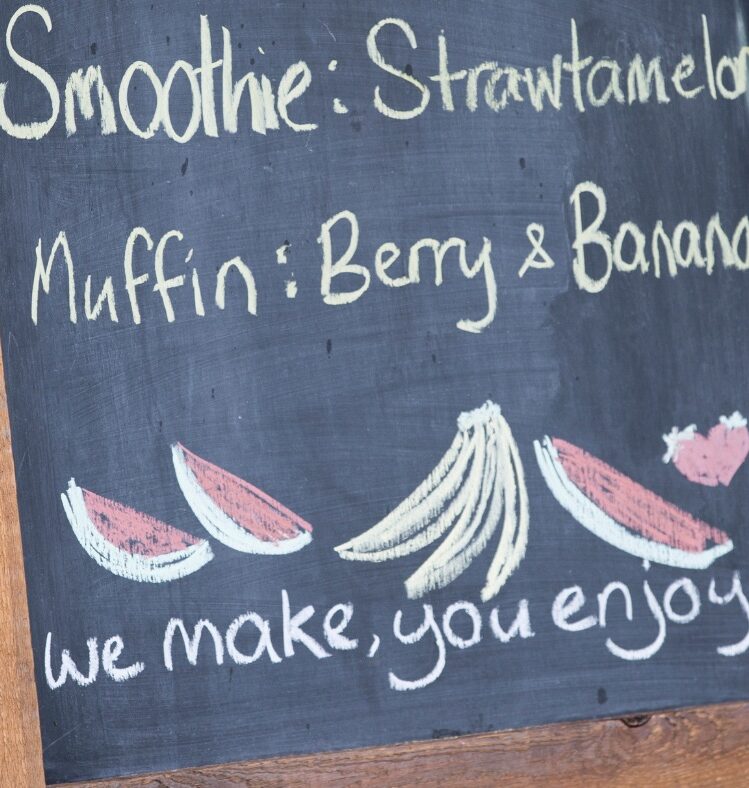 Smoothie: Strawtamelo
Muffin: Berry & Banana
we make, you enjoy